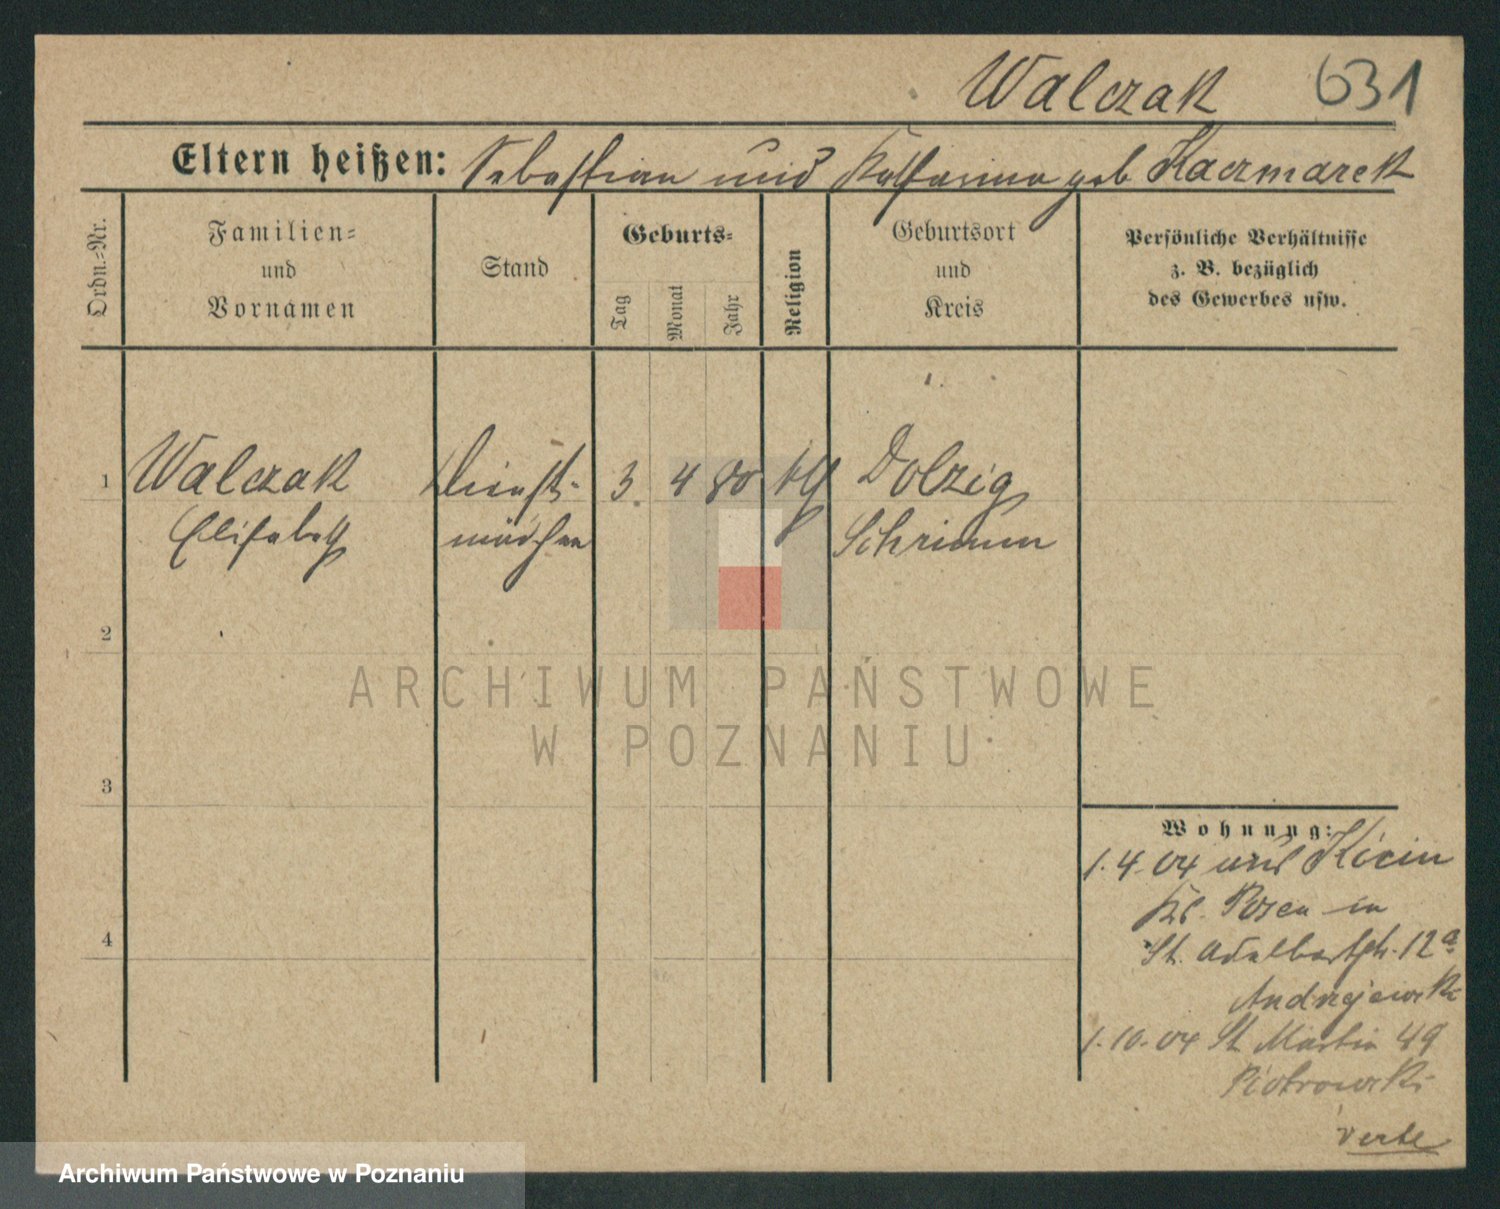 Walczak 631
Eltern heißen: Sebastian und Katharina geb Kaczmarek
Ordn.=Nr.
Familien=
und
Vornamen
Stand
Geburts=
Tag
Monat
Jahr
Religion
Geburtsort
und
Kreis
Persönliche Verhältnisse
z. B. bezüglich
des Gewerbes usw.
1 Walczak Dienst- 3. 4 80 kth Dolzig
Elisabeth mädchen Schrimm
2
3
4
Wohnung:
1.4.04 aus Kicin
Kr. Posen in
St. Adalbertstr. 12a
Andrzejewski
1.10.04 St Martin 49
Piotrowski
verte
ARCHIWUM PAŃSTWOWE
W POZNANIU
Archiwum Państwowe w Poznaniu